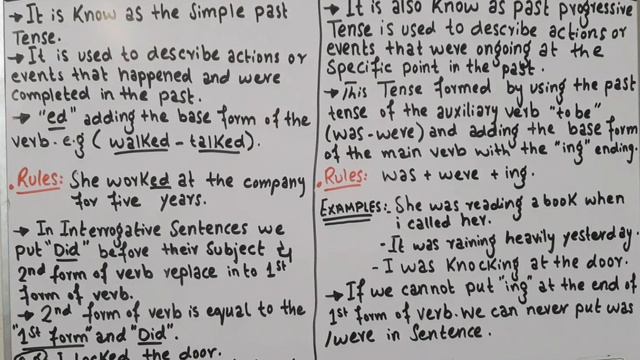 → It is Know as the Simple past
Tense.
→ It is used to describe actions or
events that happened and were
completed in the past.
→ "ed" adding the base form of the
verb. e.g ( walked - talked).
• Rules: She worked at the company
for five years.
→ In Interrogative Sentences we
put "Did" before their Subject &
2nd form of verb replace in to 1st
form of verb.
→ 2nd form of verb is equal to the
"1st form" and "Did".
I locked the door.
→ It is also Know as past progressive
Tense is used to describe actions or
events that were ongoing at the
Specific point in the past.
→ This Tense formed by using the past
tense of the auxiliary verb "to be"
(was - were) and adding the base form
of the main verb with the "ing" ending.
• Rules: was + were + ing.
EXAMPLES:- She was reading a book when
i called her.
- It was raining heavily yesterday.
- I was Knocking at the door.
→ If we cannot put "ing" at the end of
1st form of verb. we can never put was
/were in Sentence.